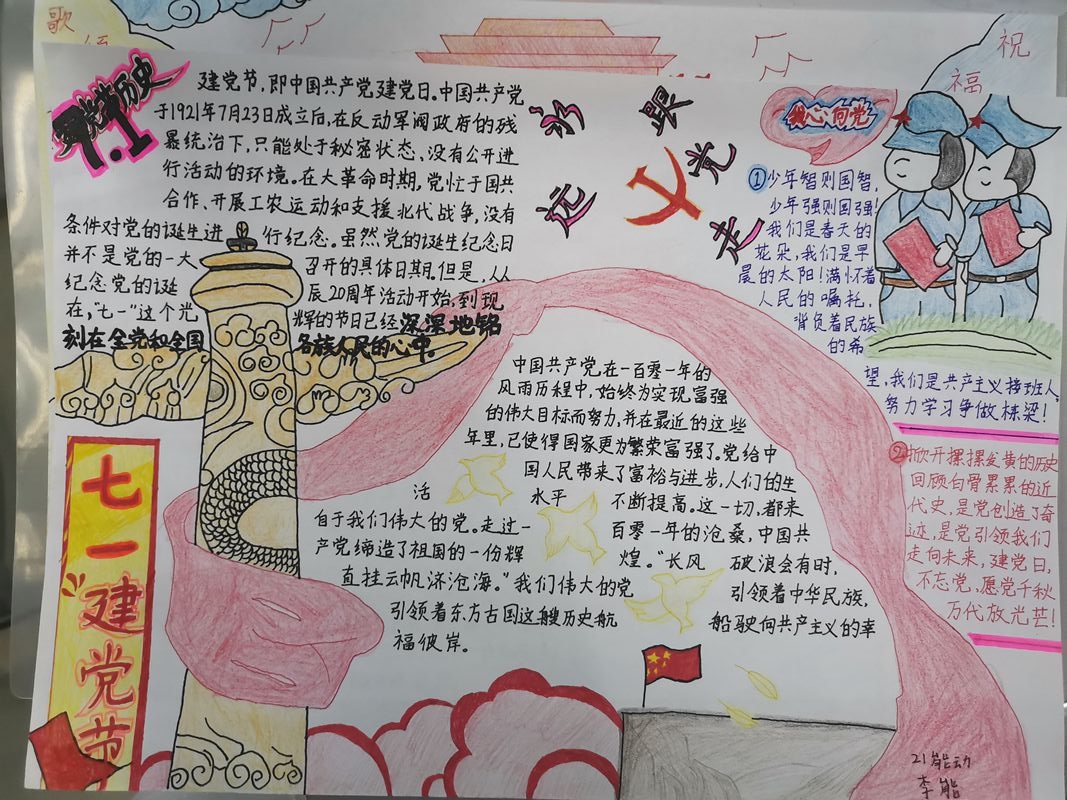 歌
祝
福
七.1
建党节,即中国共产党建党日。中国共产党
于1921年7月23日成立后,在反动军阀政府的残
暴统治下,只能处于秘密状态、没有公开进
行活动的环境。在大革命时期,党忙于国共
合作、开展工农运动和支援北代战争,没有
条件对党的诞生进 行纪念。虽然党的诞生纪念日
并不是党的一大 召开的具体日期,但是,从
纪念党的诞 辰20周年活动开始,到现
在,"七一"这个光, 辉的节日已经深深地铭
刻在全党和全国 各族人民的心中。
永 跟
远 党
走
我心向党
①少年智则国智,
少年强则国强!
我们是春天的
花朵,我们是早
晨的太阳!满怀着
人民的嘱托,
背负着民族
的希
望,我们是共产主义接班人,
努力学习争做栋梁!
②掀开摞摞发黄的历史
回顾白骨累累的近
代史,是党创造了奇
迹,是党引领我们
走向未来,建党日,
不忘党,愿党千秋
万代放光芒!
中国共产党,在一百零一年的
风雨历程中,始终为实现富强
的伟大目标而努力,并在最近的这些
年里,已使得国家更为繁荣富强了。党给中
国人民带来了富裕与进步,人们的生
活 水平 不断提高。这一切,都来
自于我们伟大的党。走过一 百零一年的沧桑,中国共
产党缔造了祖国的一份辉 煌。"长风 破浪会有时,
直挂云帆济沧海。"我们伟大的党 引领着中华民族,
引领着东方古国这艘历史航 船驶向共产主义的幸
福彼岸。
七一建党节
21能动
李能